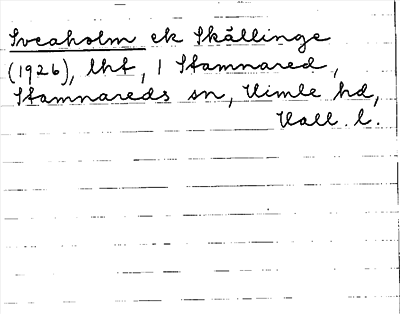 Sveaholm ek Skällinge
(1926), lht, 1 Stamnared,
Stamnareds sn, Himle hd,
Hall. l.